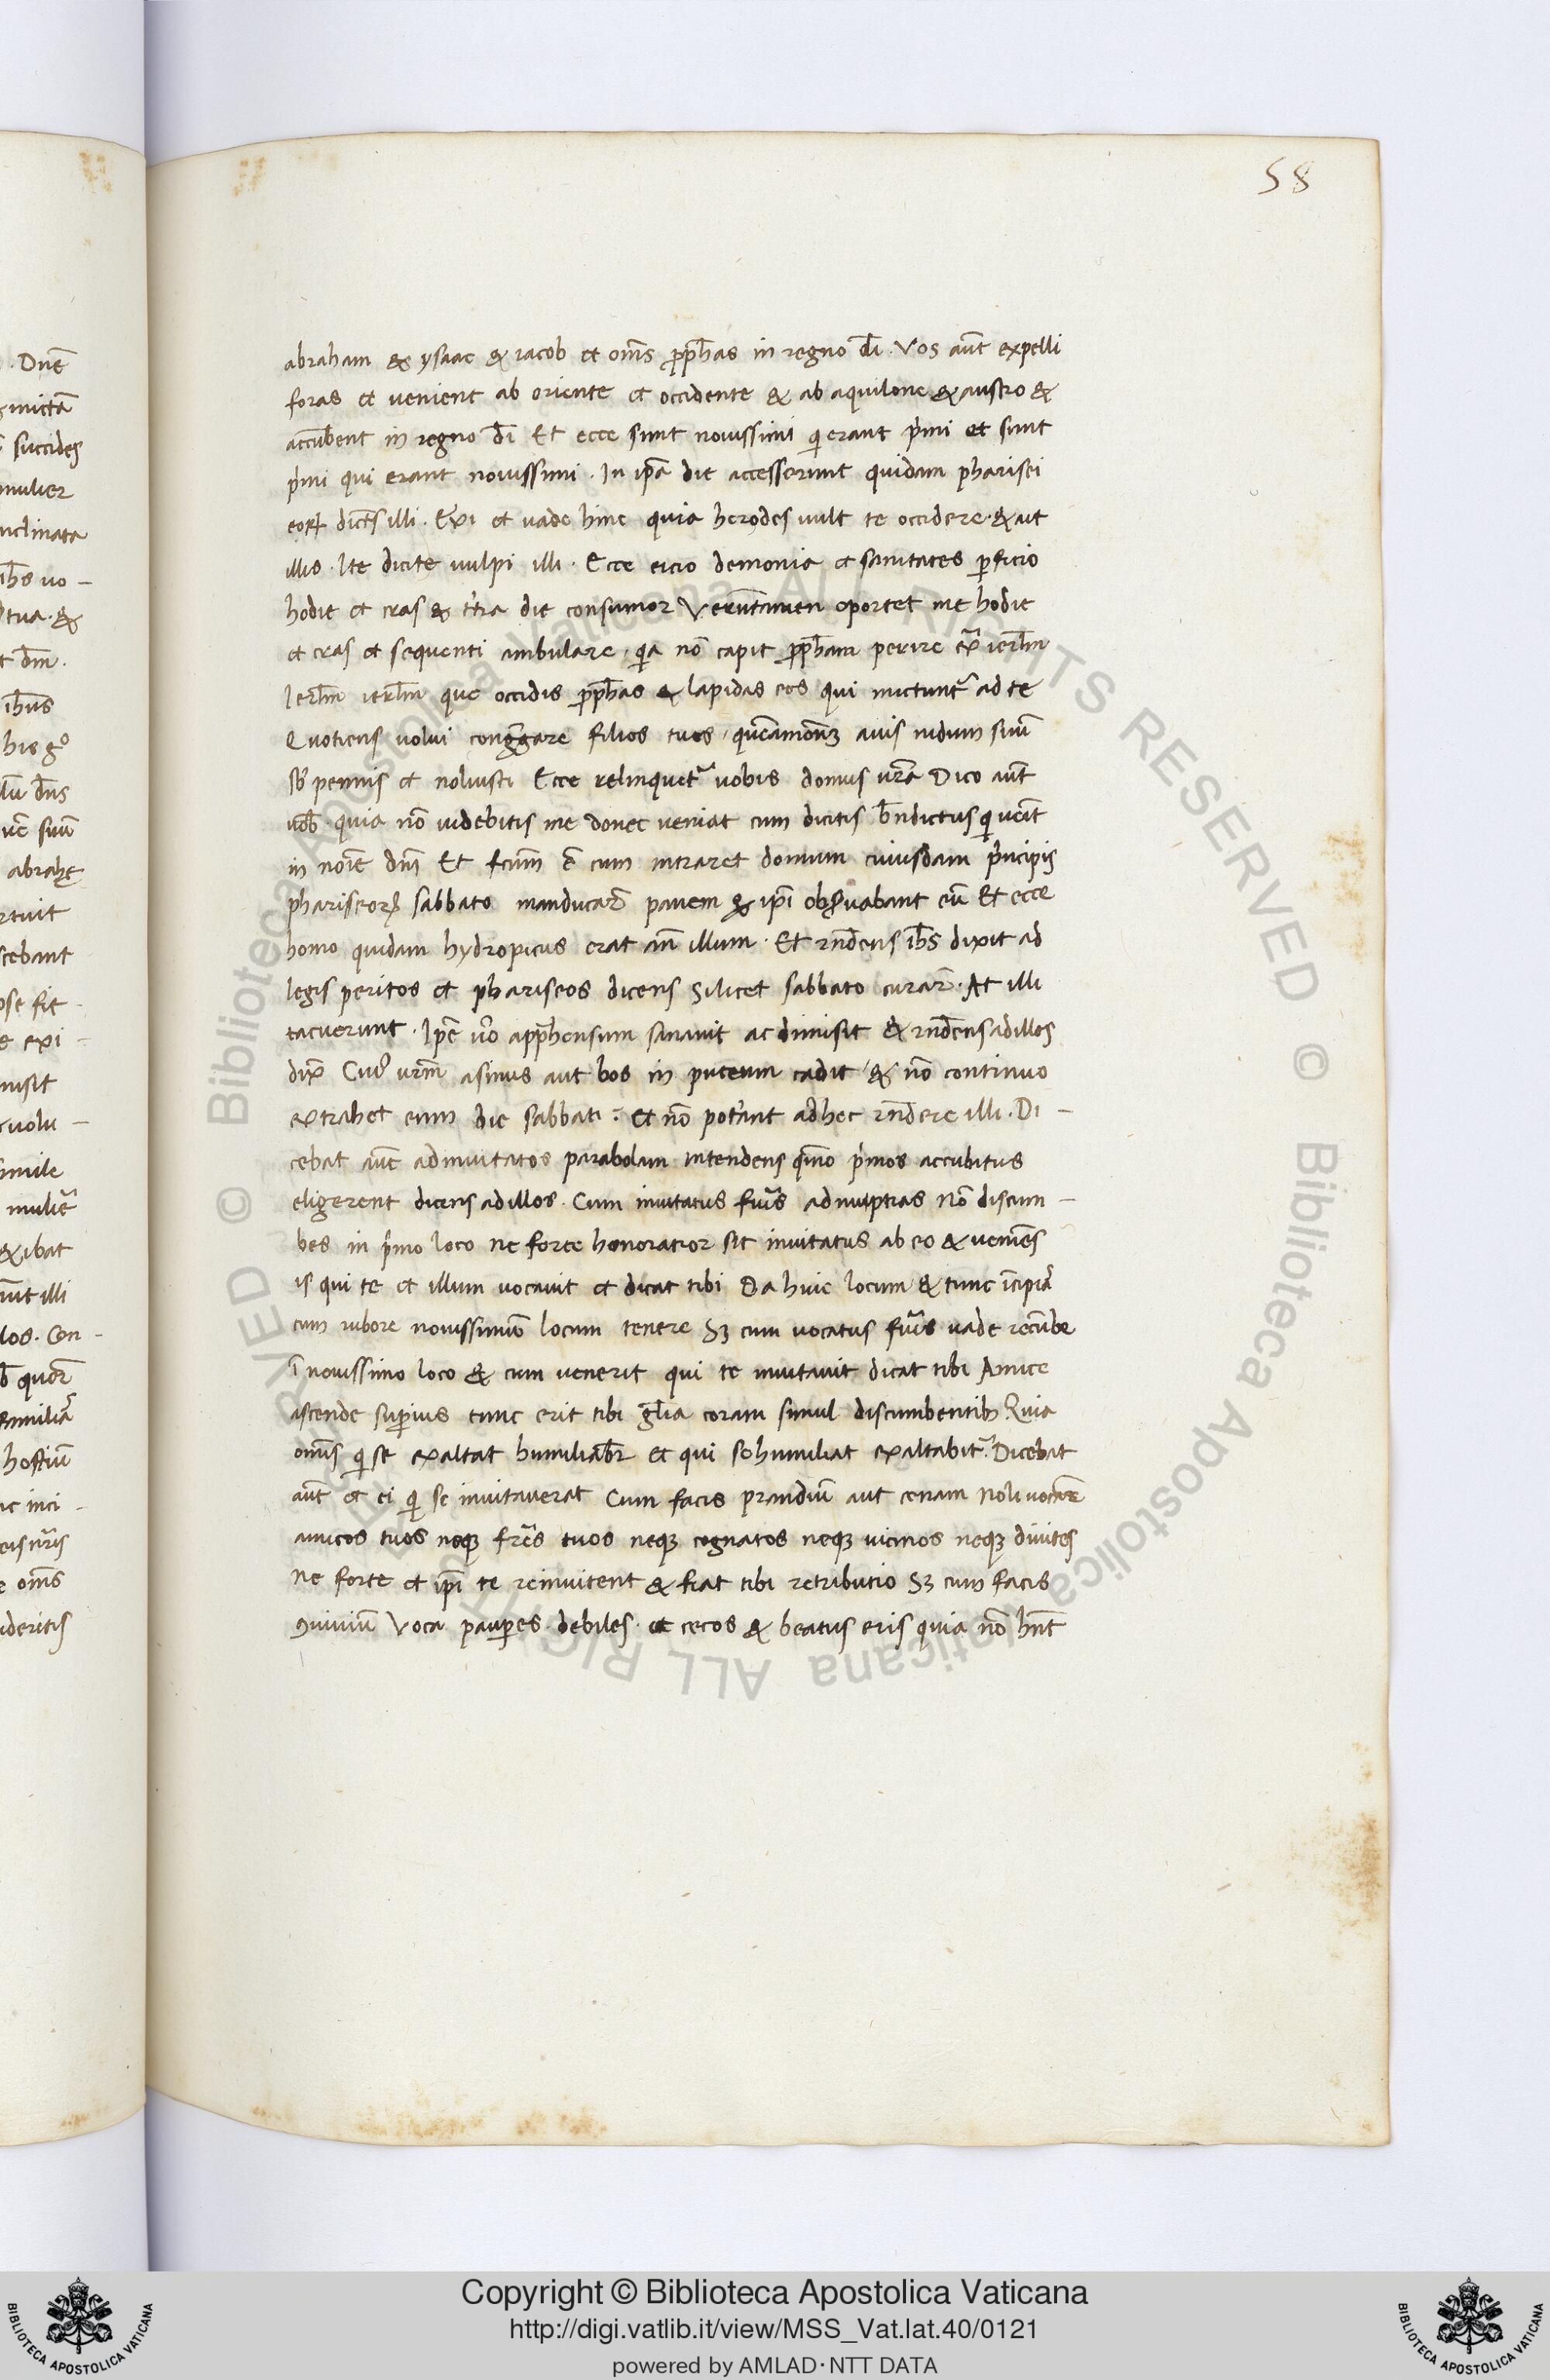 58
abraham & ysaac & iacob et om̄s ꝓph̄as in regno dī. Vos aūt expelli
foras et uenient ab oriente et occidente & ab aquilone & austro &
accūbent in regno dī Et ecce sunt nouissimi qͥ erant pͥmi et sunt
pͥmi qui erant nouissimi. In ip̄a die accesserunt quidam pharisei
eoꝝ dicēs illi. Exi et uade hinc quia herodes uult te occidere. & ait
illis. Ite dicite uulpi illi. Ecce eicio demonia et sanitates ꝑficio
hodie et cras & t̉tia die consumor Verūtamen oportet me hodie
et cras et sequenti ambulare, qͥa nō capit ꝓph̄am perire ext̃ ierl̄m
Ierl̄m ierl̄m que occidis ꝓph̄as & lapidas eos qui mictunt᷑ ad te
Quotiens uolui cong̃gare filios tuos, quēamodū auis nidum suū
sb̄ pennis et noluisti Ecce relinquet᷑ uobis domus ur̄a Dico aūt
uob̄. quia nō uidebitis me donec ueniat cum dicitis bn̄dictus qͥ ueīt
in noīe dnī Et fcūm ē cum intraret domum cuiusdam pͥncipis
phariseoꝝ sabbato manducar̄ panem & ipī obẜuabant eū Et ecce
homo quidam hydropicus erat an̄ illum. Et rn̄dens ihs̄ dixit ad
legis peritos et phariseos dicens Si licet sabbato curar̄. At illi
tacuerunt. Ip̄e u̇o appͣhensum sanauit ac dimisit & rn̄dens ad illos
dix̄ Cui᷒ ur̄m asinus aut bos in puteum cadit, & nō continuo
extrahet eum die sabbati: et nō pot̉ant ad hec rn̄dere illi. Di-
cebat aūt ad inuitatos parabolam intendens qūo pͥmos accubitus
eligerent dicens ad illos. Cum inuitatus fu̇is ad nuptias Nō discum-
bes in pͥmo loco ne forte honoratior sit inuitatus ab eo & ueniēs
is qui te et illum uocauit et dicat tibi Da huic locum & tunc īcipiā
cum rubore nouissimū locum tenere Sꝫ cum uocatus fu̇is uade recūbe
ī nouissimo loco & cum uenerit qui te inuitauit dicat tibi Amice
ascende suꝑius tunc erit tibi gl̄ia coram simul discumbentibꝫ Quia
omīs qͥ se exaltat humiliabr̄ et qui se humiliat exaltabit᷑. Dicebat
aūt et ei qͥ se inuitauerat Cum facis prandiū aut cenam Noli uocare
amicos tuos neqꝫ fr̄es tuos neqꝫ cognatos neqꝫ uicinos neqꝫ diuites
Ne forte et ipī te reinuitent & fiat tibi retributio Sꝫ cum facis
ꝯuiuiū Voca pauꝑes. debiles. et cecos & beatus eris quia nō hn̄t
Copyright © Biblioteca Apostolica Vaticana
http://digi.vatlib.it/view/MSS_Vat.lat.40/0121
powered by AMLAD·NTT DATA